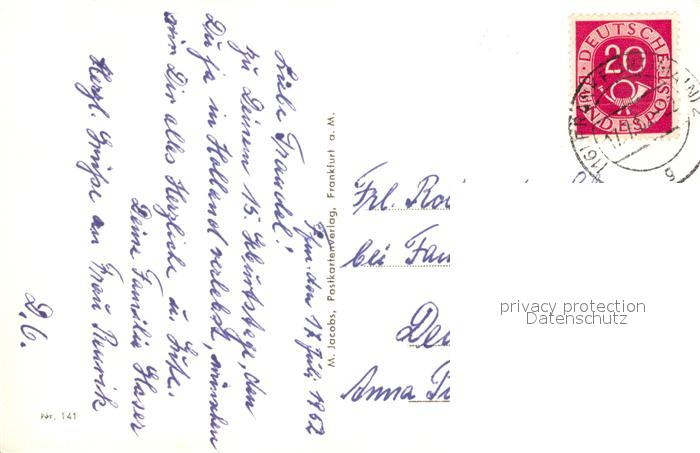 DEUTSCHE
BUNDESPOST
20
Ffm. den 17. Juli 1952
Liebe Traudel!
Zu Deinem 15. Geburtstage, den
Du ja in Holland verlebst, wünschen
wir Dir alles Herzliche u. Gute.
Deine Familie Glaser
Herzl. Grüße an Frau
D. O.
M. Jacobs, Postkartenverlag, Frankfurt a. M.
Frl. Ro
bei Fam
De
Anna
privacy protection
Datenschutz
Nr. 141